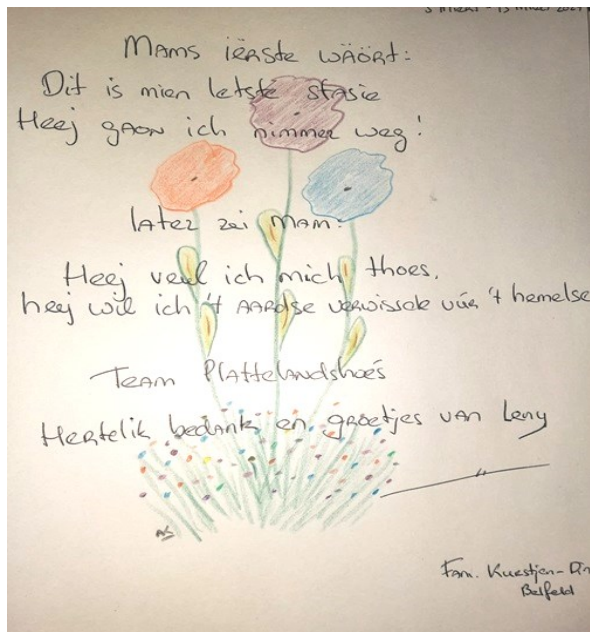 Mams iërste wäört:
Dit is mien letste stasie
Heej gaon ich nimmer weg!
later zei mam:
Heej veul ich mich thoes.
heej wil ich 't aardse verwissele vúr 't hemelse
Team Plattelandshoés
Hertelik bedank en groetjes van Leny
Fam. Kuestjen-Din
Belfeld